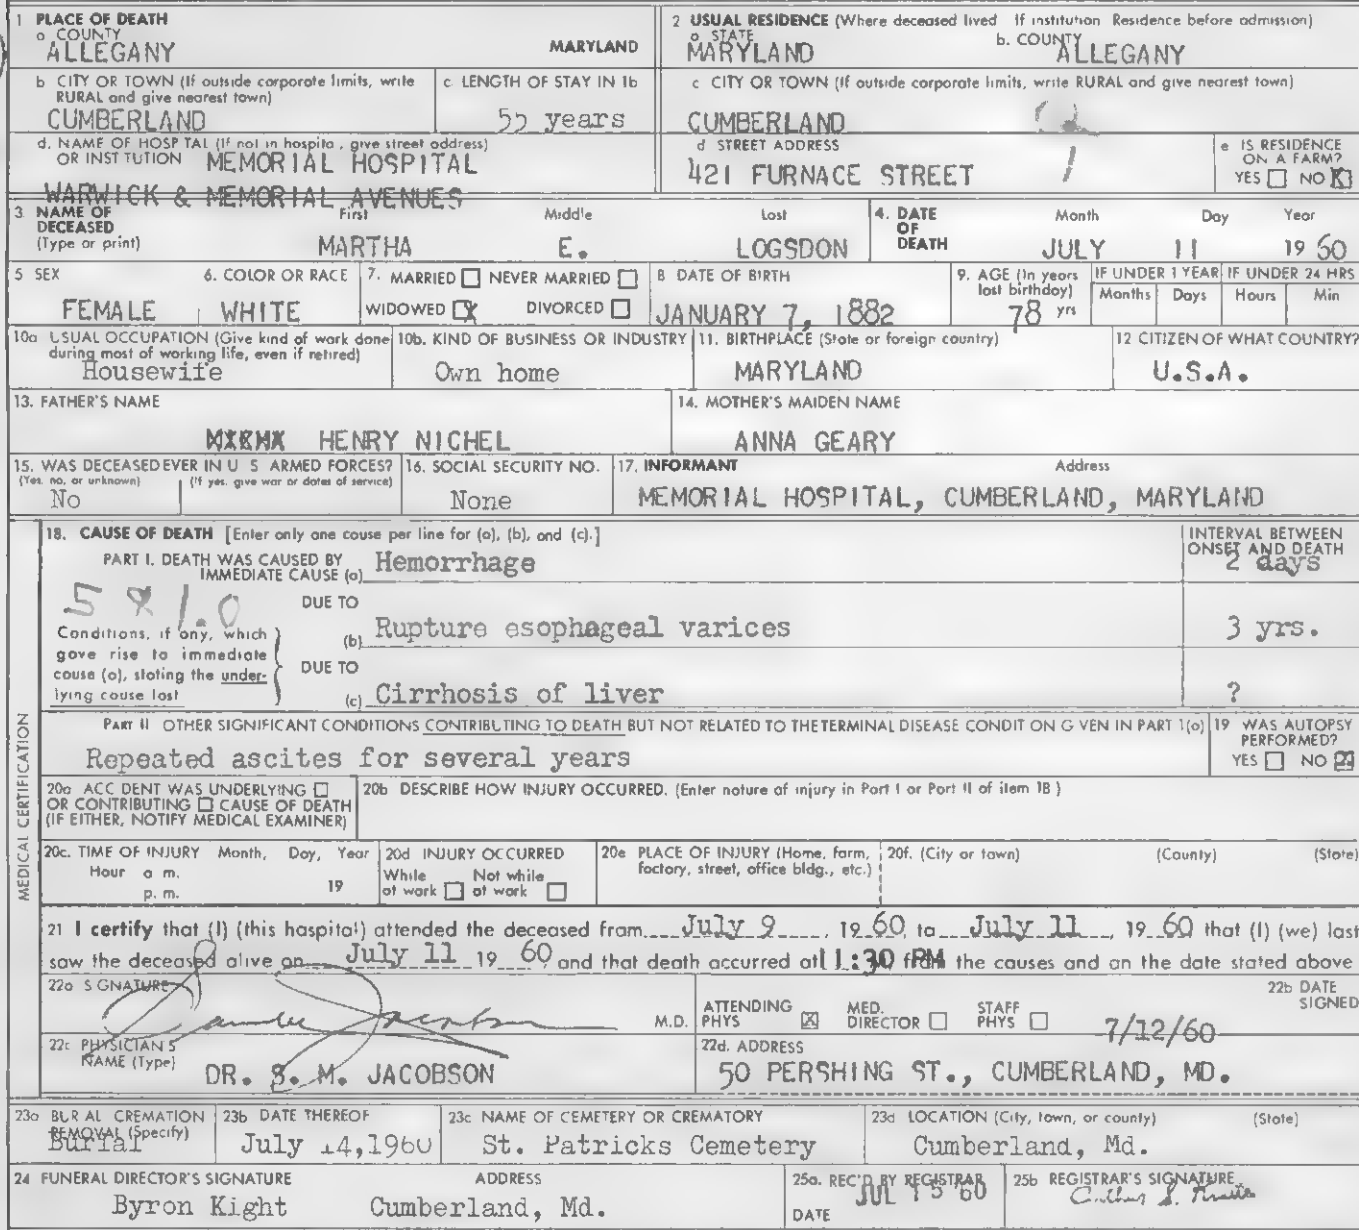 1 PLACE OF DEATH
a COUNTY
ALLEGANY MARYLAND
2 USUAL RESIDENCE (Where deceased lived If institution Residence before admission)
a STATE b. COUNTY
MARYLAND ALLEGANY
b CITY OR TOWN (If outside corporate limits, write RURAL and give nearest town)
CUMBERLAND
c LENGTH OF STAY IN 1b
55 years
c CITY OR TOWN (If outside corporate limits, write RURAL and give nearest town)
CUMBERLAND
d. NAME OF HOSP TAL (If not in hospita , give street address)
OR INST TUTION MEMORIAL HOSPITAL
WARWICK & MEMORIAL AVENUES
d STREET ADDRESS
421 FURNACE STREET
e IS RESIDENCE ON A FARM?
YES NO X
3. NAME OF DECEASED (Type or print)
First Middle Last
MARTHA E. LOGSDON
4. DATE OF DEATH
Month Day Year
JULY 11 19 60
5 SEX
FEMALE
6. COLOR OR RACE
WHITE
7. MARRIED NEVER MARRIED
WIDOWED X DIVORCED
8 DATE OF BIRTH
JANUARY 7, 1882
9. AGE (In years last birthday)
78 yrs
IF UNDER 1 YEAR
Months Days
IF UNDER 24 HRS
Hours Min
10a USUAL OCCUPATION (Give kind of work done during most of working life, even if retired)
Housewife
10b. KIND OF BUSINESS OR INDUSTRY
Own home
11. BIRTHPLACE (State or foreign country)
MARYLAND
12 CITIZEN OF WHAT COUNTRY?
U.S.A.
13. FATHER'S NAME
HENRY NICHEL
14. MOTHER'S MAIDEN NAME
ANNA GEARY
15. WAS DECEASED EVER IN U S ARMED FORCES?
(Yes, no, or unknown) (If yes, give war or dates of service)
No
16. SOCIAL SECURITY NO.
None
17. INFORMANT Address
MEMORIAL HOSPITAL, CUMBERLAND, MARYLAND
MEDICAL CERTIFICATION
18. CAUSE OF DEATH [Enter only one cause per line for (a), (b), and (c).]
INTERVAL BETWEEN ONSET AND DEATH
PART I. DEATH WAS CAUSED BY
IMMEDIATE CAUSE (a) Hemorrhage 2 days
581.0
DUE TO
Conditions, if any, which gave rise to immediate cause (a), stating the underlying cause last
(b) Rupture esophageal varices 3 yrs.
DUE TO
(c) Cirrhosis of liver ?
PART II OTHER SIGNIFICANT CONDITIONS CONTRIBUTING TO DEATH BUT NOT RELATED TO THE TERMINAL DISEASE CONDIT ON G VEN IN PART 1(a)
Repeated ascites for several years
19 WAS AUTOPSY PERFORMED?
YES NO X
20a ACC DENT WAS UNDERLYING
OR CONTRIBUTING CAUSE OF DEATH
(IF EITHER, NOTIFY MEDICAL EXAMINER)
20b DESCRIBE HOW INJURY OCCURRED. (Enter nature of injury in Part I or Part II of item 18 )
20c. TIME OF INJURY Month, Day, Year
Hour a m.
p. m. 19
20d INJURY OCCURRED
While at work Not while at work
20e PLACE OF INJURY (Home, farm, factory, street, office bldg., etc.)
20f. (City or town) (County) (State)
21 I certify that (I) (this hospital) attended the deceased from July 9, 19 60, to July 11, 19 60 that (I) (we) last
saw the deceased alive on July 11 19 60, and that death occurred at 11:30 PM from the causes and on the date stated above
22a SIGNATURE
Jacobson M.D.
ATTENDING PHYS X MED. DIRECTOR STAFF PHYS
22b DATE SIGNED
7/12/60
22c PHYSICIAN'S NAME (Type)
DR. S. M. JACOBSON
22d. ADDRESS
50 PERSHING ST., CUMBERLAND, MD.
23a BUR AL CREMATION REMOVAL (Specify)
Burial
23b DATE THEREOF
July 14,1960
23c NAME OF CEMETERY OR CREMATORY
St. Patricks Cemetery
23d LOCATION (City, town, or county) (State)
Cumberland, Md.
24 FUNERAL DIRECTOR'S SIGNATURE ADDRESS
Byron Kight Cumberland, Md.
25a. REC'D BY REGISTRAR
DATE JUL 15 60
25b REGISTRAR'S SIGNATURE